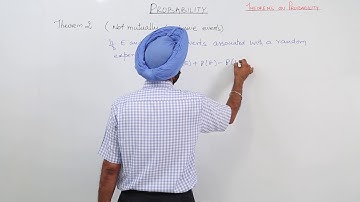 PROBABILITY
THEOREMS ON PROBABILITY
Theorem 2 (Not mutually events)
If E events associated with a random
exper P(F) -